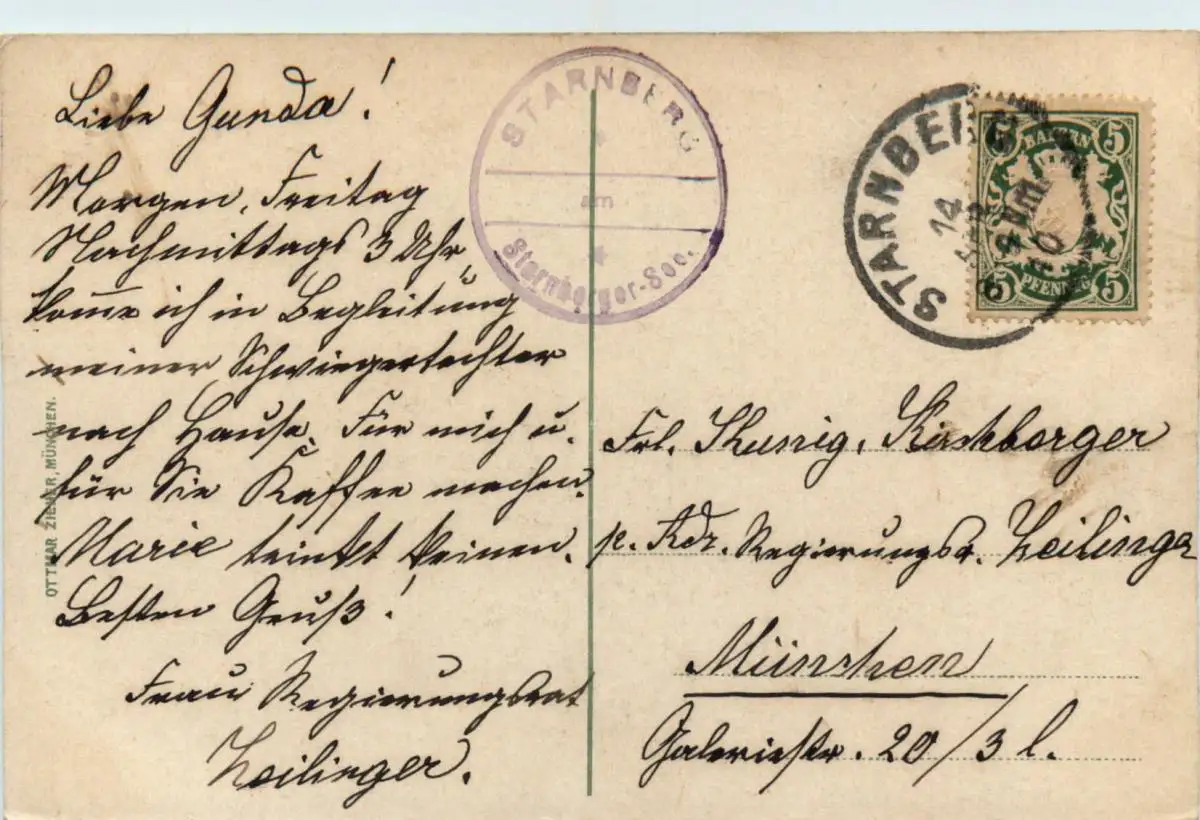 Liebe Gunda!
Morgen, Freitag
Nachmittags 3 Uhr,
komme ich in Begleitung
meiner Schwiegertochter
nach Hause. Für mich u.
für Sie Kaffee machen.
Marie trinkt keinen.
Besten Gruß!
Frau Regierungsrat
Zeilinger.
OTTMAR ZIEHER, MÜNCHEN.
STARNBERG
am
Starnberger-See.
STARNBERG
14
Vm.
5 5
BAYERN
PFENNIG
5 5
Frl. Kunig. Kirchberger
p. Adr. Regierungsr. Zeilinger
München
Galeriestr. 20/3 l.